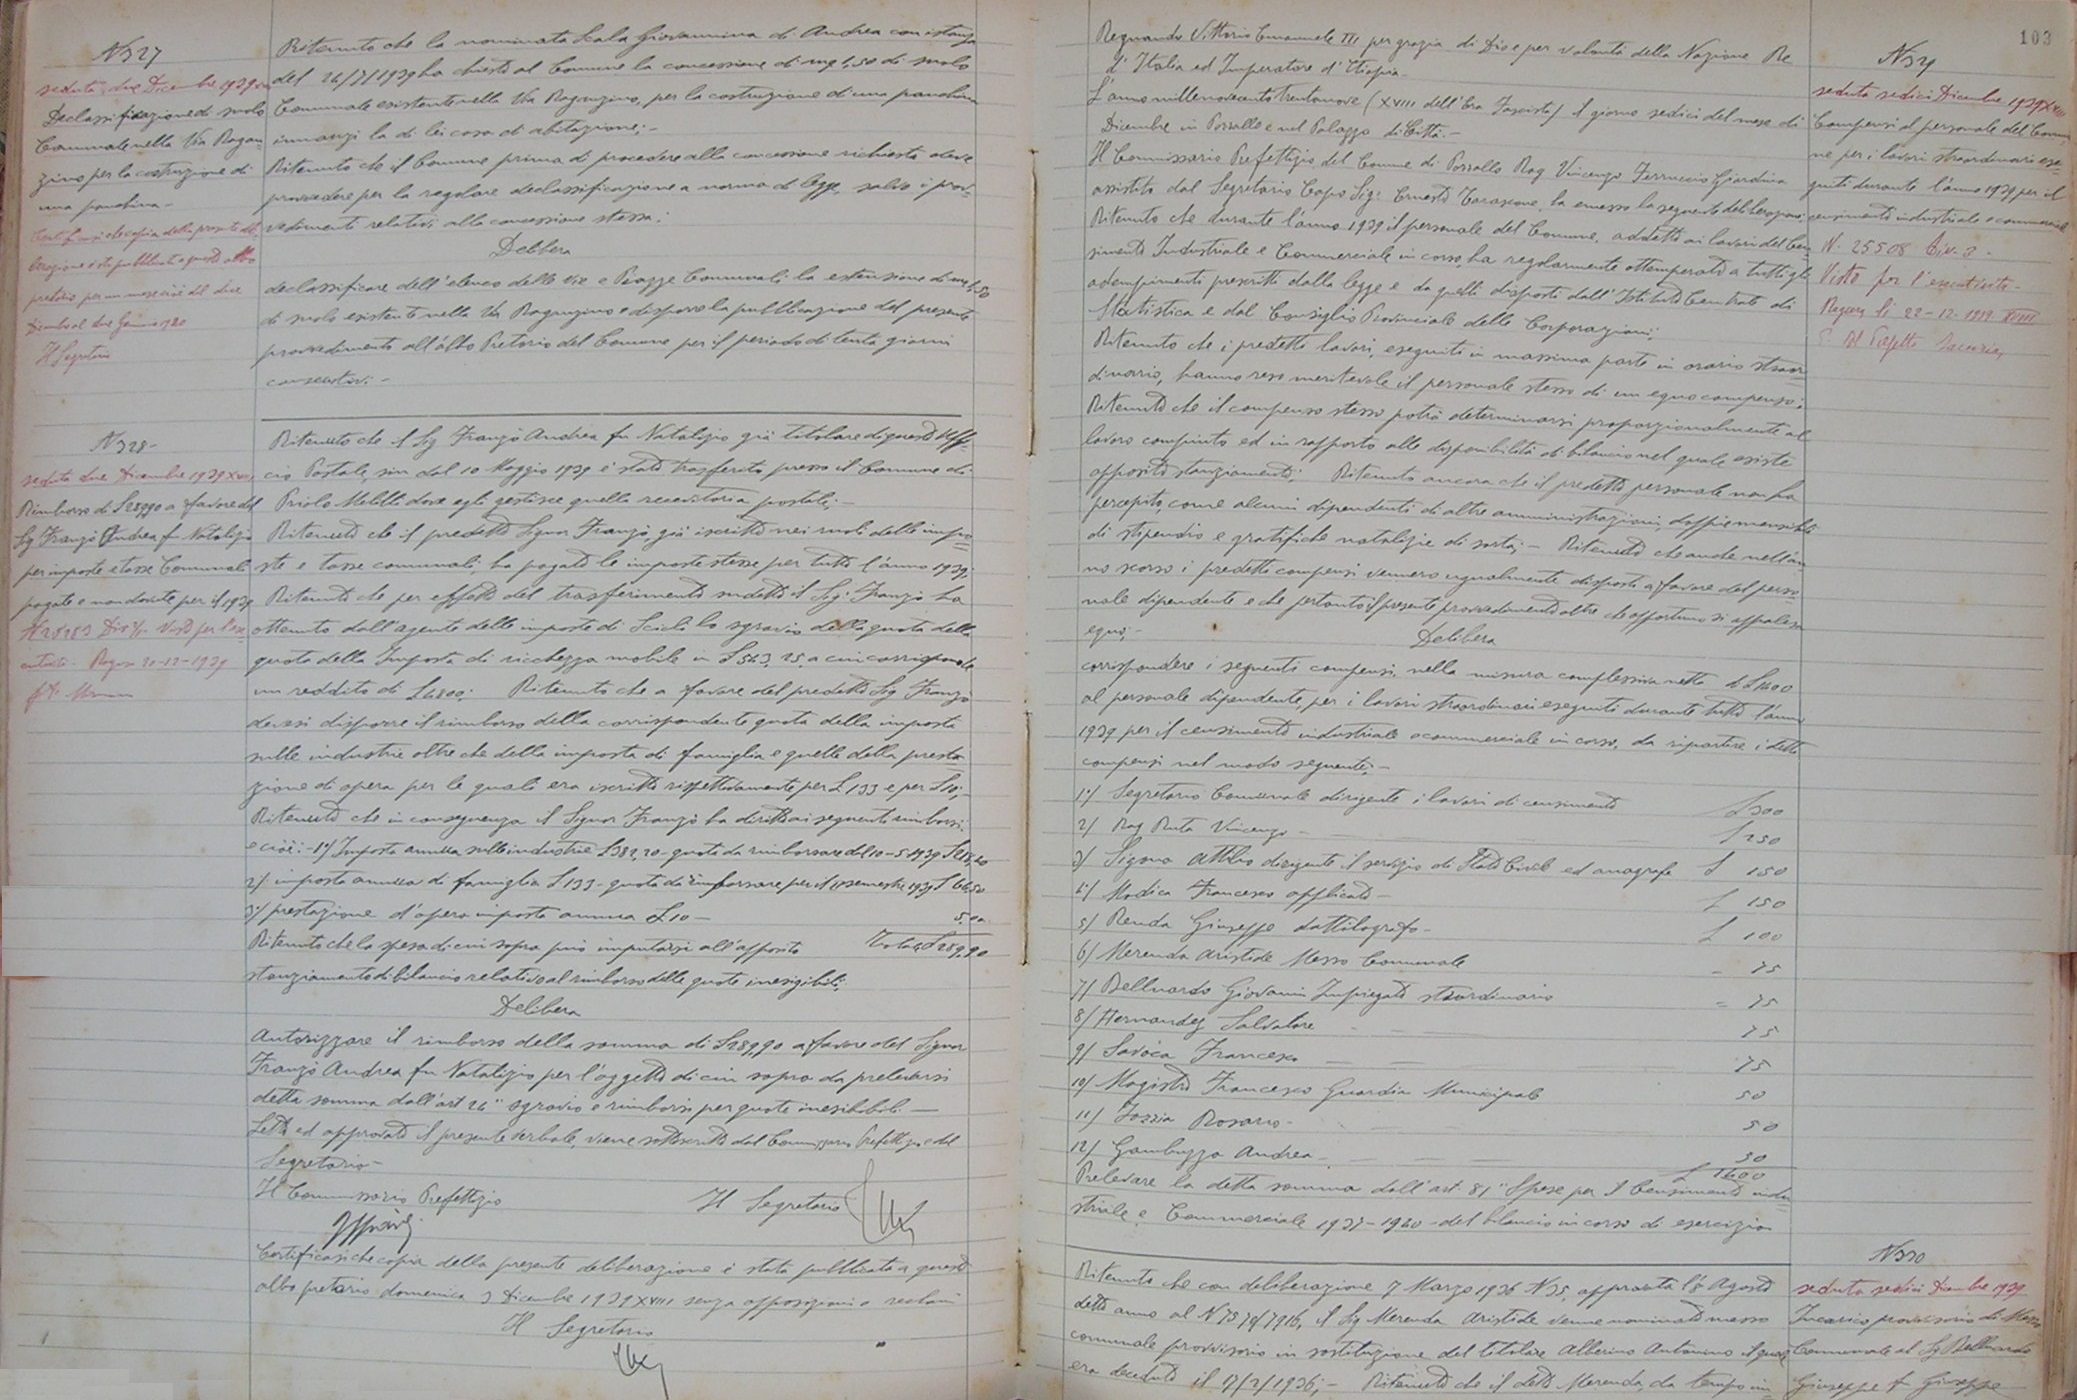 N 327
seduta due Dicembre 1939 XVIII
Declassificazione di suolo
Comunale nella Via Ragun
zino per la costruzione di
una panchina -
Certificasi che copia della presente deli
berazione è stata pubblicata a questo albo
pretorio per un mese cioè dal due
Dicembre al due Gennaio 1940
Il Segretario
Ritenuto che la nominata Scala Giovannina di Andrea con istanza
del 24/7/1939 ha chiesto al Comune la concessione di mq 1,50 di suolo
Comunale esistente nella Via Ragunzino, per la costruzione di una panchina
innanzi la di lei casa di abitazione; -
Ritenuto che il Comune prima di procedere alla concessione richiesta deve
provvedere per la regolare declassificazione a norma di legge, salvo i prov-
vedimenti relativi alla concessione stessa;
Delibera
declassificare dell'elenco delle Vie e Piazze Comunali la estensione di mq 1,50
di suolo esistente nella Via Ragunzino e disporre la pubblicazione del presente
provvedimento all'albo Pretorio del Comune per il periodo di trenta giorni
consecutivi. -
N 328 -
seduta due Dicembre 1939 XVIII
Rimborso di £ 289,90 a favore del
Sig Franzò Andrea fu Natalizio
per imposte e tasse Comunali
pagate e non dovute per il 1939
N 25283 Div 2/ Visto per l'ese
cutività - Ragusa 20-12-1939
Ritenuto che il Sig Franzò Andrea fu Natalizio già titolare di questo Uffi-
cio Postale, sin dal 10 Maggio 1939 è stato trasferito presso il Comune di
Priolo Melilli dove egli gestisce quella ricevitoria postale; -
Ritenuto che il predetto Signor Franzò, già iscritto nei ruoli delle impo-
ste e tasse comunali, ha pagato le imposte stesse per tutto l'anno 1939;
Ritenuto che per effetto del trasferimento sudetto il Sig. Franzò ha
ottenuto dall'agente delle imposte di Scicli lo sgravio della quota della
quota della Imposta di ricchezza mobile in £ 543,25, a cui corrisponde
un reddito di £ 4800; Ritenuto che a favore del predetto Sig Franzò
devesi disporre il rimborso della corrispondente quota della imposta
sulle industrie oltre che della imposta di famiglia e quelle della presta
zione di opera per le quali era iscritto rispettivamente per £ 133 e per £ 10; -
Ritenuto che in conseguenza il Signor Franzò ha diritto ai seguenti rimborsi
e cioè: - 1°/ Imposta annua sulle industrie £ 382,20 - quota da rimborsare dal 10-5-1939 £ 218,40
2/ imposta annua di famiglia £ 133 - quota da rimborsare per il II semestre 1939 £ 66,50
3°/ prestazione d'opera imposta annua £ 10 - 5,00
Ritenuto che la spesa di cui sopra può imputarsi all'apposito Totale £ 289,90
stanziamento di bilancio relativo al rimborso delle quote inesigibili;
Delibera
Autorizzare il rimborso della somma di £ 289,90 a favore del Signor
Franzò Andrea fu Natalizio per l'oggetto di cui sopra da prelevarsi
detta somma dall'art 24 " sgravio e rimborsi per quote inesigibili -
Letto ed approvato il presente verbale, viene sottoscritto dal Commissario Prefettizio e dal
Segretario -
Il Commissario Prefettizio Il Segretario
Certificasi che copia della presente deliberazione è stata pubblicata a questo
albo pretorio domenica 3 Dicembre 1939 XVIII senza opposizioni o reclami
Il Segretario
103
Regnando Vittorio Emanuele III per grazia di Dio e per volontà della Nazione Re
d'Italia ed Imperatore d'Etiopia -
L'anno millenovecentotrentanove (XVIII dell'Era Fascista) il giorno sedici del mese di
Dicembre in Pozzallo e nel Palazzo di Città. -
Il Commissario Prefettizio del Comune di Pozzallo Rag Vincenzo Ferruccio Giardina
assistito dal Segretario Capo Sig: Ernesto Tarascone, ha emesso la seguente deliberazione
Ritenuto che durante l'anno 1939 il personale del Comune, addetto ai lavori del Cen-
simento Industriale e Commerciale in corso, ha regolarmente ottemperato a tutti gli
adempimenti prescritti dalla legge e da quelli disposti dall'Istituto Centrale di
Statistica e dal Consiglio Provinciale delle Corporazioni;
Ritenuto che i predetti lavori, eseguiti in massima parte in orario straor-
dinario, hanno reso meritevole il personale stesso di un equo compenso;
Ritenuto che il compenso stesso potrà determinarsi proporzionalmente al
lavoro compiuto ed in rapporto alle disponibilità di bilancio nel quale esiste
apposito stanziamento; Ritenuto ancora che il predetto personale non ha
percepito, come alcuni dipendenti di altre amministrazioni, doppie mensilità
di stipendio e gratifiche natalizie di sorta; - Ritenuto che anche nell'an-
no scorso i predetti compensi vennero ugualmente disposti a favore del perso-
nale dipendente e che pertanto il presente provvedimento oltre che opportuno si appalesa
equo; -
Delibera
corrispondere i seguenti compensi, nella misura complessiva netta di £ 1400
al personale dipendente, per i lavori straordinari eseguiti durante tutto l'anno
1939 per il censimento industriale e commerciale in corso, da ripartire i detti
compensi nel modo seguente: -
1°/ Segretario Comunale dirigente i lavori di censimento £ 300
2/ Rag Ruta Vincenzo - £ 250
3/ Sigona Attilio dirigente il servizio di Stato Civile ed anagrafe £ 150
4/ Modica Francesco applicato - £ 150
5/ Renda Giuseppe dattilografo - £ 100
6/ Merenda Aristide Messo Comunale - 75
7/ Belluardo Giovanni Impiegato straordinario = 75
8/ Hernandez Salvatore 75
9/ Savoca Francesco 75
10/ Magistro Francesco Guardia Municipale 50
11/ Rosario - 50
12/ Gambuzza Andrea - 50
£ 1400
Prelevare la detta somma dall'art. 81 " Spese per il Censimento indu
striale e Commerciale 1937-1940 - del bilancio in corso di esercizio
N 329
seduta sedici Dicembre 1939 XVIII
Compensi al personale del Comu
ne per i lavori straordinari ese-
guiti durante l'anno 1939 per il
censimento industriale e commerciale
N. 25508 Div. 2 -
Visto per l'esecutività -
Ragusa li 22-12-1939 XVIII
Il Prefetto
Ritenuto che con deliberazione 7 Marzo 1936 N 35, approvata l'8 Agosto
detto anno al N 7916, il Sig Merenda Aristide venne nominato messo
comunale provvisorio in sostituzione del titolare Alberino Antonino il quale
era deceduto il 17/2/1936; - Ritenuto che il detto Merenda, da tempo in-
N 330
seduta sedici Dicembre 1939
Incarico provvisorio di Messo
Comunale al Sig Belluardo
Giuseppe fu Giuseppe